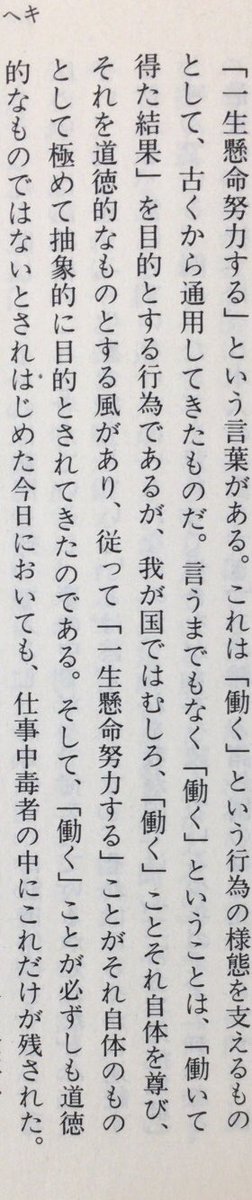 「一生懸命努力する」という言葉がある。これは「働く」という行為の様態を支えるもの
として、古くから通用してきたものだ。言うまでもなく「働く」ということは、「働いて
得た結果」を目的とする行為であるが、我が国ではむしろ、「働く」ことそれ自体を尊び、
それを道徳的なものとする風があり、従って「一生懸命努力する」ことがそれ自体のもの
として極めて抽象的に目的とされてきたのである。そして、「働く」ことが必ずしも道徳
的なものではないとされはじめた今日においても、仕事中毒者の中にこれだけが残された。
ヘキ